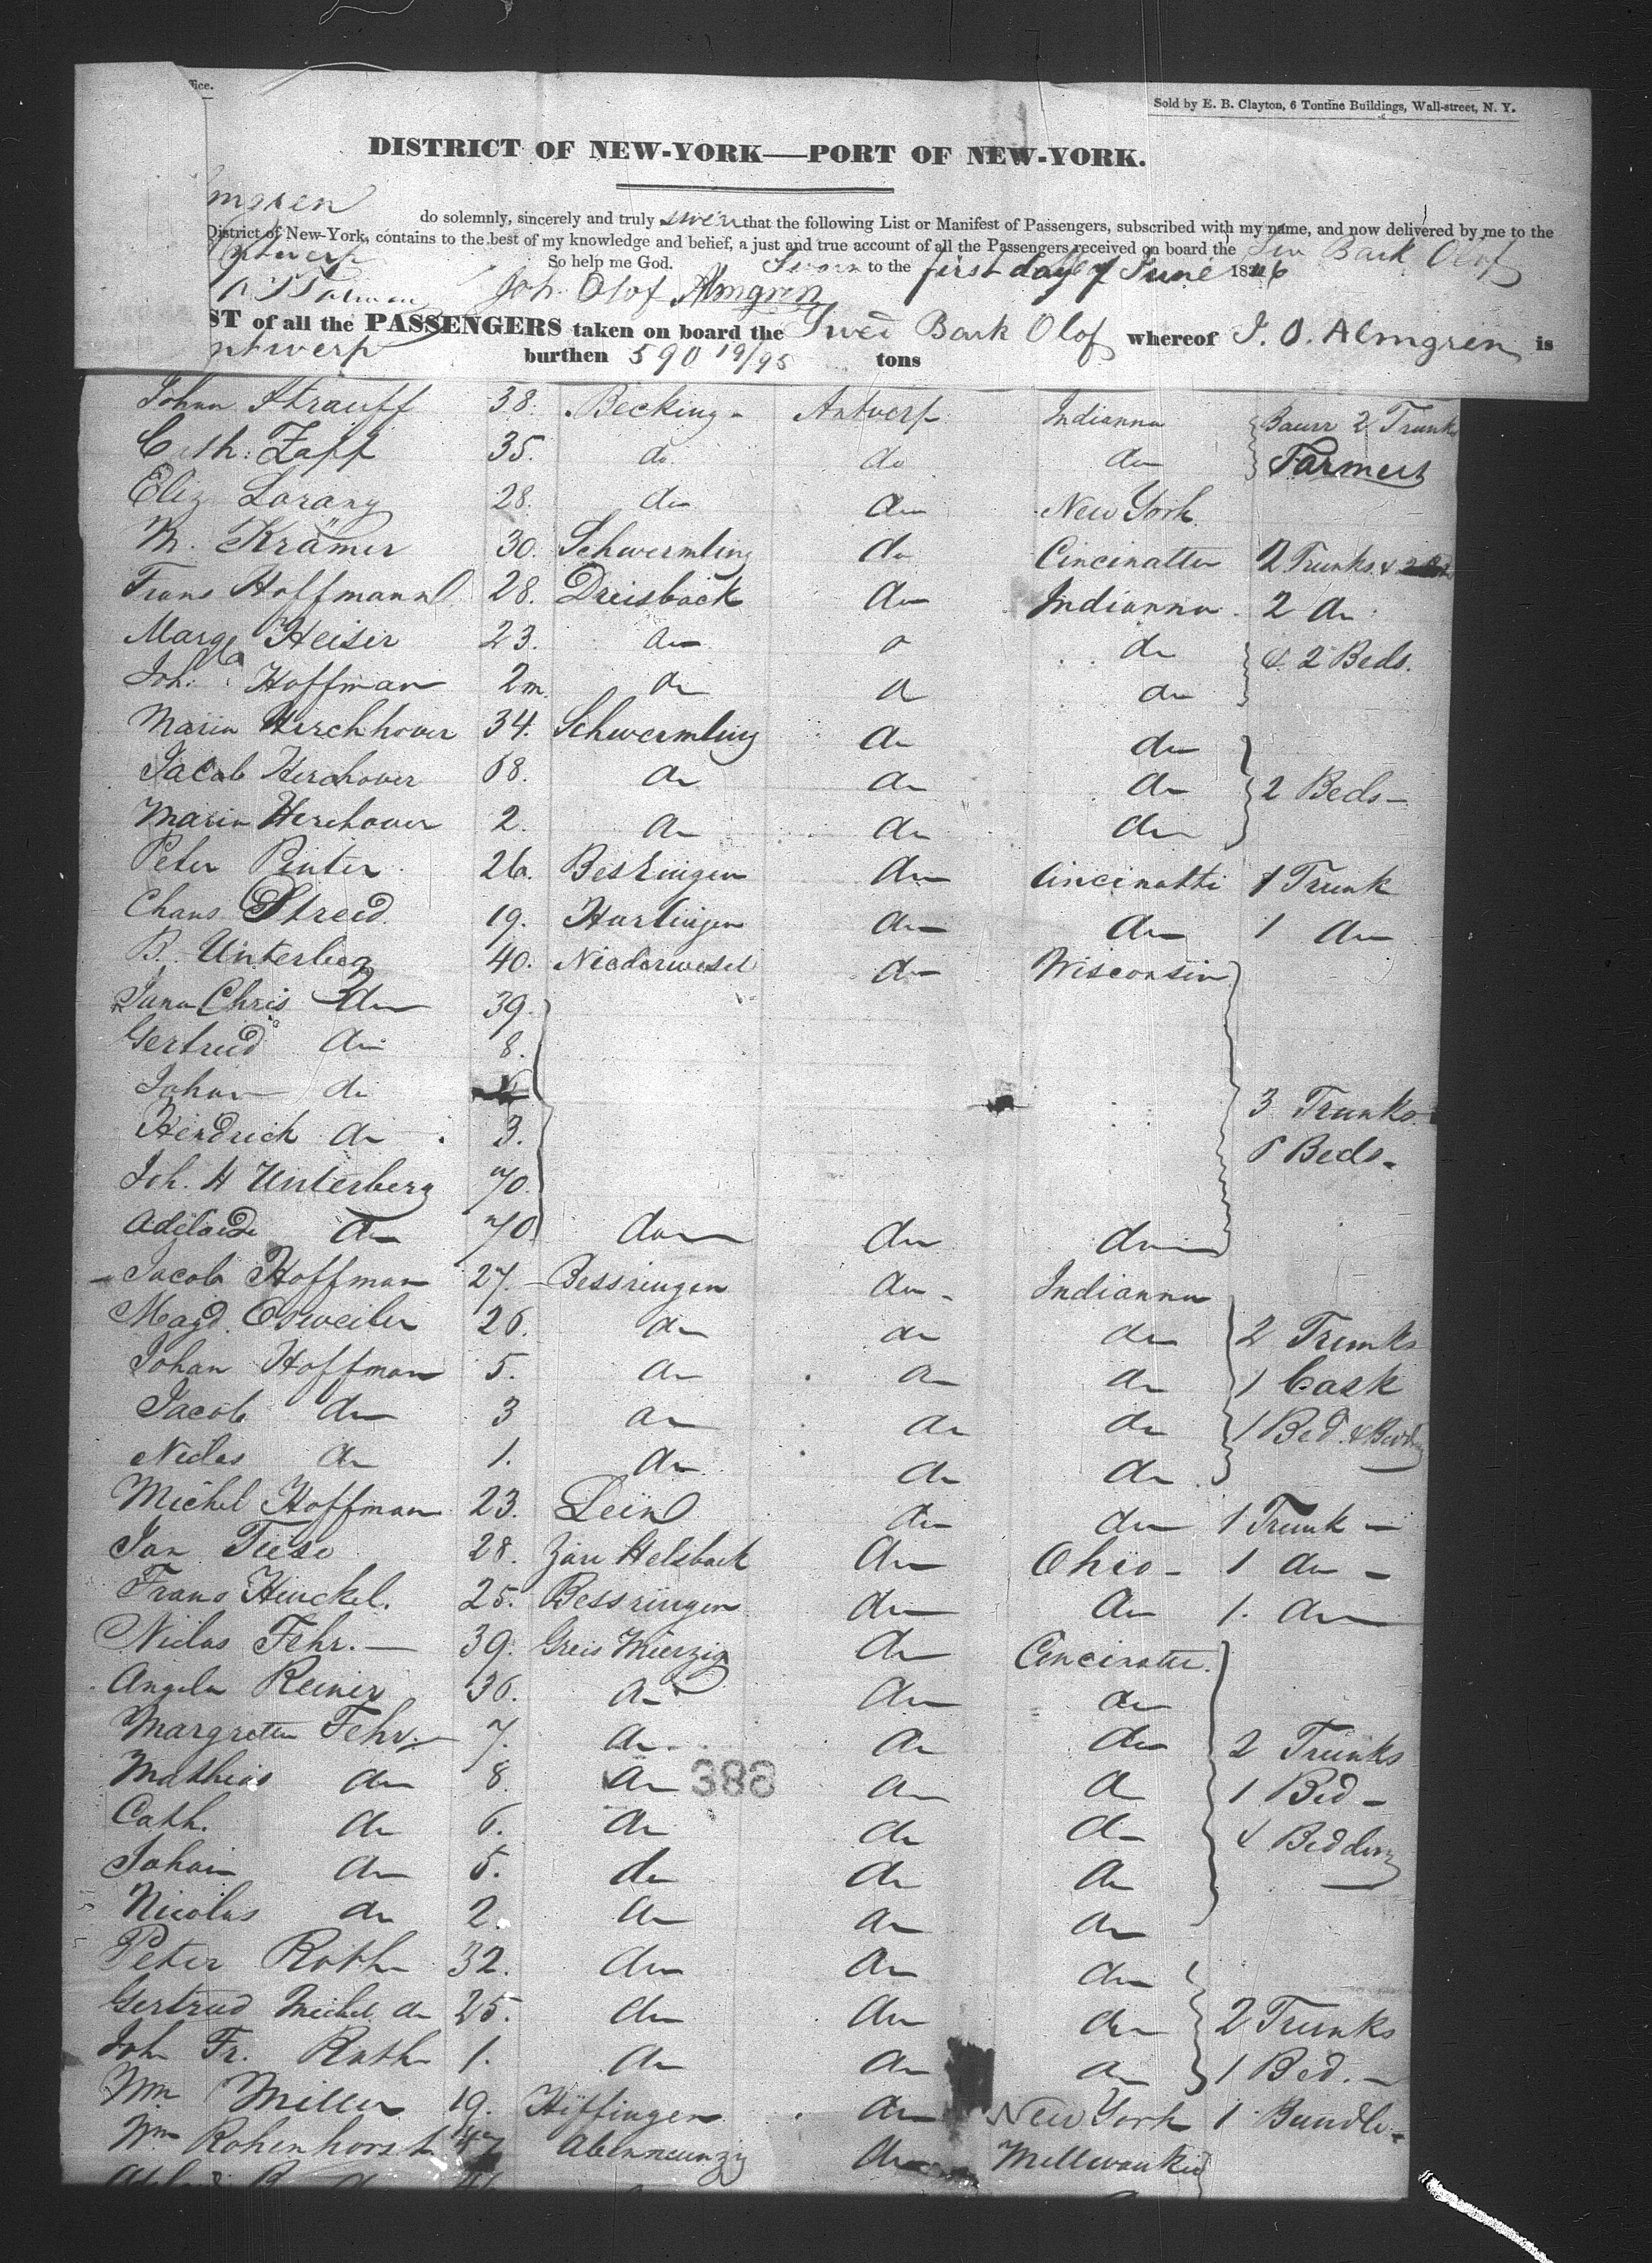 fice.
Sold by E. B. Clayton, 6 Tontine Buildings, Wall-street, N. Y.
DISTRICT OF NEW-YORK—PORT OF NEW-YORK.
mgren do solemnly, sincerely and truly swear that the following List or Manifest of Passengers, subscribed with my name, and now delivered by me to the
District of New-York, contains to the best of my knowledge and belief, a just and true account of all the Passengers received on board the Sw Bark Olof
Antwerp So help me God. Sworn to the first day of June 1846
Joh. Olof Almgren
ST of all the PASSENGERS taken on board the Swed Bark Olof whereof J. O. Almgren is
ntwerp burthen 590 19/95 tons
Johan Strauff 38. Becking - Antwerp Indianna 2 Trunks
Cath. Zapp 35. do do do Farmers
Eliz Lorang 28. do do New York
M. Krämer 30. Schwermling do Cincinatti 2 Trunks &
Frans Hoffmann 28. Dreisback do Indianna 2 do
Marg Heiser 23. do do & 2 Beds.
Joh. Hoffman 2m. do do do
Maria Herchhover 34. Schwermling do do
Jacob Herchover 68. do do do 2 Beds-
Maria Herchover 2. do do do
Peter Pinter 26. Besringen do Cincinatti 1 Trunk
Chans Streid 19. Harlingen do do 1 do
B. Unterberg 40. Niederwesel do Wisconsin
Chris do 39.
Gertrud do 8.
Johan do
Hendrich do 3. 3 Trunks
Joh. H Unterberg 70. Beds-
Adelaide do 70 do do do
Jacob Hoffman 27. Bessringen do - Indianna
Magd. Osweiler 26. do do do 2 Trunks
Johan Hoffman 5. do do do 1 Cask
Jacob do 3 do do do 1 Bed & Bedding
Niclas do 1. do do do
Michel Hoffman 23. do do 1 Trunk -
Jan Tiese 28. Zäu Helsback do Ohio - 1 do -
Frans Hinckel. 25. Bessringen do do 1. do
Niclas Fehr. 39. Greis Mierzig do Cincinatti.
Angela Reiner 36. do do do
Margretta Fehr. 7. do do do 2 Trunks
Mathias do 8. do 388 do do 1 Bed -
Cath. do 6. do do do & Bedding
Johan do 5. do do do
Nicolas do 2. do do do
Peter Roth 32. do do do
Gertrud Michel do 25. do do do 2 Trunks
Joh Fr. Roth 1. do do do 1 Bed. -
Wm Miller 19. Hiffingen do New York 1 Bundle -
Wm Rohenhorst 47 do Millwaukie